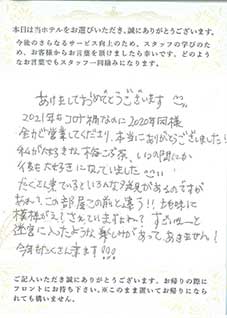 本日は当ホテルをお選びいただき、誠にありがとうございます。
今後のさらなるサービス向上のため、スタッフの学びのため、お客様からお言葉を頂けましたら幸いです。どのようなお言葉でもスタッフ一同励みになります。
あけましておめでとうございます
2021年もコロナ禍なのに2020年同様
全力で営業してくださり、本当にありがとうございました!
私が大好きな
大好きになっていました
たくさん来ているといろんな発見があるのですが
あれ?この部屋この前と違う!! 地味に
模様がえ?されていますよね? すごいなーと
迷宮に入ったような楽しみがあって、あきません!
今年もたくさん来ます!!!
ご記入いただき誠にありがとうございます。お帰りの際にフロントにお持ち下さい。※このまま置いてお帰りになられても構いません。